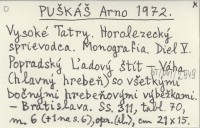 PUŠKÁŠ Arno 1972.
Vysoké Tatry. Horolezecký
sprievodca. Monografia. Diel V.
Popradský Ľadový štít – Váha.
(hlavný hrebeň so všetkými
bočnými hrebeňovými výbežkami.
– Bratislava. SŠ, 511, tabl. 70,
m. 6 (+1 na s. 6), opr. (il.), cm 21×15.